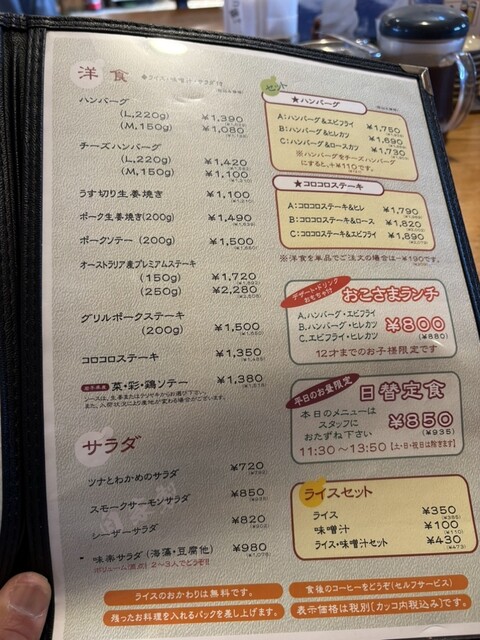 洋食 ◆ライス・味噌汁・サラダ付
ハンバーグ
(L.220g) ¥1,390
(M.150g) ¥1,080
チーズハンバーグ
(L.220g) ¥1,420
(M.150g) ¥1,100
うす切り生姜焼き ¥1,100
ポーク生姜焼き(200g) ¥1,490
ポークソテー (200g) ¥1,500
オーストラリア産プレミアムステーキ
(150g) ¥1,720
(250g) ¥2,280
グリルポークステーキ
(200g) ¥1,500
コロコロステーキ ¥1,350
岩手県産 菜・彩・鶏ソテー ¥1,380
ソースは、生姜またはテリヤキからお選び下さい。
また、入荷状況により産地が変わる場合がございます。
サラダ
ツナとわかめのサラダ ¥720
スモークサーモンサラダ ¥850
シーザーサラダ ¥820
味楽サラダ (海藻・豆腐他) ¥980
ボリューム満点! 2〜3人でどうぞ!!
セット
★ハンバーグ
A:ハンバーグ&エビフライ ¥1,750
B:ハンバーグ&ヒレカツ ¥1,690
C:ハンバーグ&ロースカツ ¥1,730
※ハンバーグをチーズハンバーグ
にすると、+¥110です。
★コロコロステーキ
A:コロコロステーキ&ヒレ ¥1,790
B:コロコロステーキ&ロース ¥1,820
C:コロコロステーキ&エビフライ ¥1,890
※洋食を単品でご注文の場合は−¥190です。
デザート・ドリンク
おもちゃ付
おこさまランチ
A.ハンバーグ・エビフライ
B.ハンバーグ・ヒレカツ
C.エビフライ・ヒレカツ
¥800
(¥880)
12才までのお子様限定です
平日のお昼限定
日替定食
本日のメニューは
スタッフに
おたずね下さい
¥850
(¥935)
11:30〜13:50 [土・日・祝日は除きます]
ライスセット
ライス ¥350
味噌汁 ¥100
(¥110)
ライス・味噌汁セット ¥430
(¥473)
ライスのおかわりは無料です。
残ったお料理を入れるパックを差し上げます。
食後のコーヒーをどうぞ(セルフサービス)
表示価格は税別(カッコ内税込み)です。